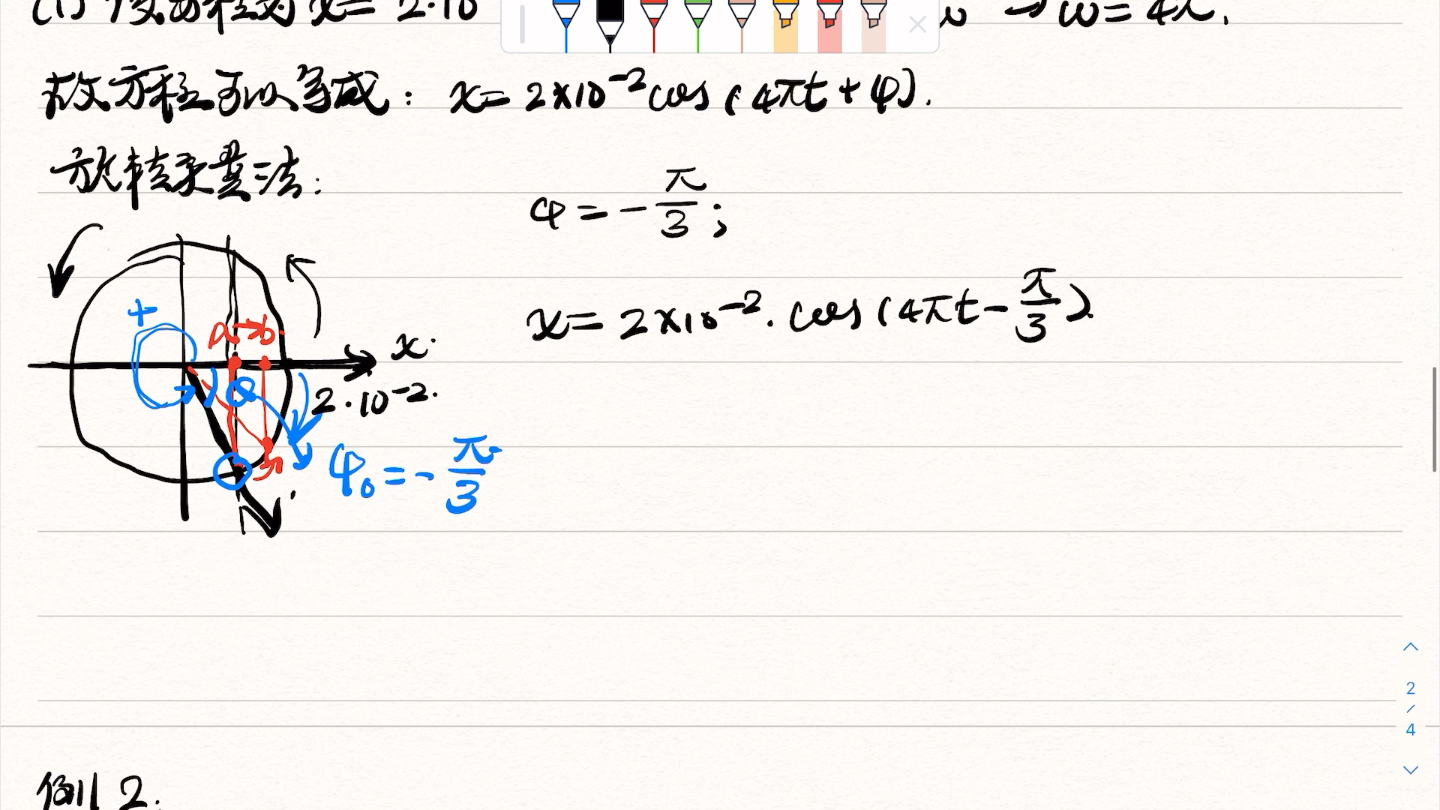 (1) 设方程为 x = 2·10
ω → ω = 4π.
故方程可以写成: x = 2×10⁻² cos (4πt + φ).
旋转矢量法:
φ = -π/3;
x = 2×10⁻². cos (4πt - π/3).
+
a→b.
x.
2·10⁻².
φ₀ = -π/3
例 2.
2
/
4